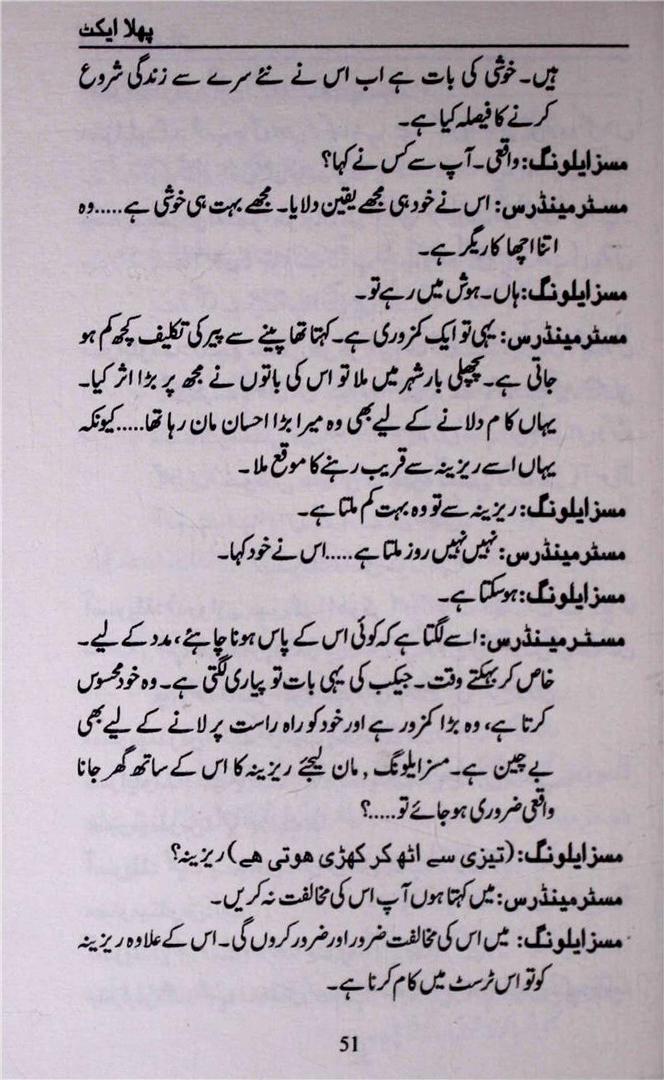 پہلا ایکٹ
ہیں۔ خوشی کی بات ہے اب اس نے نئے سرے سے زندگی شروع
کرنے کا فیصلہ کیا ہے۔
مسز ایلونگ: واقعی۔ آپ سے کس نے کہا؟
مسٹر مینڈرس: اس نے خود ہی مجھے یقین دلایا۔ مجھے بہت ہی خوشی ہے.....وہ
اتنا اچھا کاریگر ہے۔
مسز ایلونگ: ہاں۔ ہوش میں رہے تو۔
مسٹر مینڈرس: یہی تو ایک کمزوری ہے۔ کہتا تھا پینے سے پیر کی تکلیف کچھ کم ہو
جاتی ہے۔ پچھلی بار شہر میں ملا تو اس کی باتوں نے مجھ پر بڑا اثر کیا۔
یہاں کام دلانے کے لیے بھی وہ میرا بڑا احسان مان رہا تھا.....کیونکہ
یہاں اسے ریزینہ سے قریب رہنے کا موقع ملا۔
مسز ایلونگ: ریزینہ سے تو وہ بہت کم ملتا ہے۔
مسٹر مینڈرس: نہیں نہیں روز ملتا ہے.....اس نے خود کہا۔
مسز ایلونگ: ہوسکتا ہے۔
مسٹر مینڈرس: اسے لگتا ہے کہ کوئی اس کے پاس ہونا چاہئے، مدد کے لیے۔
خاص کر بہکتے وقت۔ جیکب کی یہی بات تو پیاری لگتی ہے۔ وہ خود محسوس
کرتا ہے، وہ بڑا کمزور ہے اور خود کو راہ راست پر لانے کے لیے بھی
بے چین ہے۔ مسز ایلونگ, مان لیجئے ریزینہ کا اس کے ساتھ گھر جانا
واقعی ضروری ہو جائے تو.....؟
مسز ایلونگ: (تیزی سے اٹھ کر کھڑی ہوتی ہے) ریزینہ؟
مسٹر مینڈرس: میں کہتا ہوں آپ اس کی مخالفت نہ کریں۔
مسز ایلونگ: میں اس کی مخالفت ضرور اور ضرور کروں گی۔ اس کے علاوہ ریزینہ
کو تو اس ٹرسٹ میں کام کرنا ہے۔
51